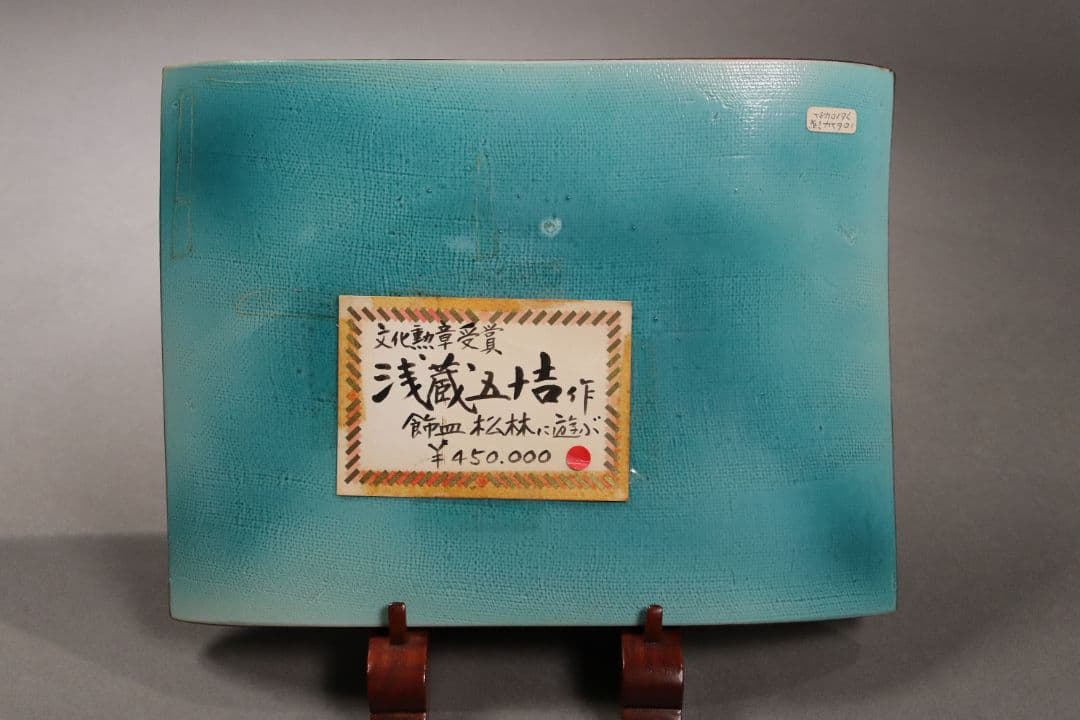 文化勲章受賞
浅蔵五十吉作
飾皿 松林に遊ぶ
¥450.000